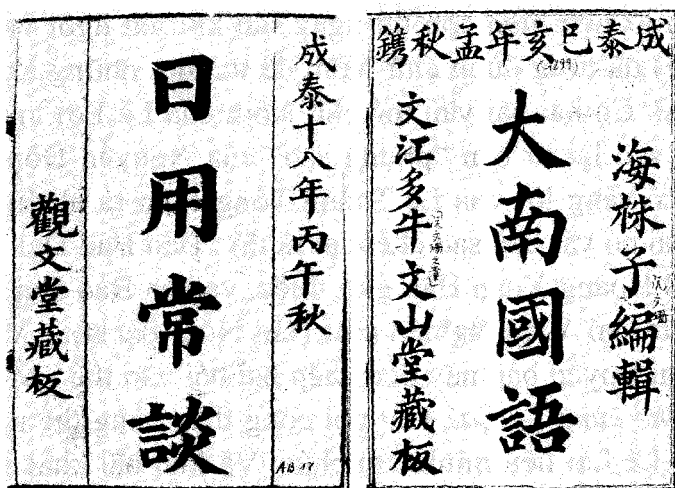 成泰巳亥年孟秋鐫
海株子編輯
大南國語
文江多牛文山堂藏板
成泰十八年丙午秋
日用常談
觀文堂藏板
AB 17